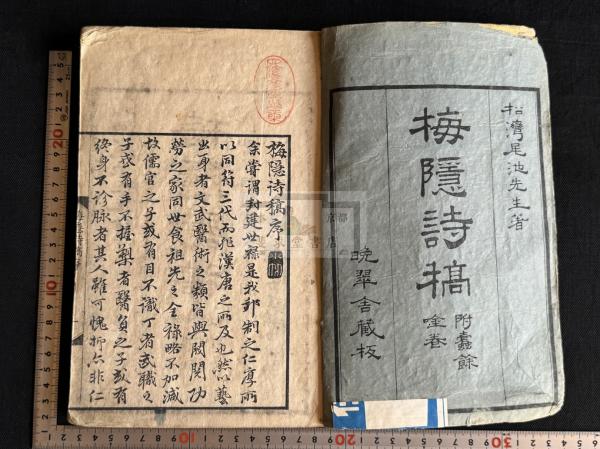 松灣尾池先生著
梅隱詩稿
附蠹餘
全卷
晩翠舎藏板
梅隱詩稿序
余嘗謂封建世祿是我邦制之仁厚所
以同符三代而非漢唐之所及也然以藝
出身者文武醫術之類皆與閥閱功
勞之家同世食祖先之全祿略不加減
故儒官之子或有目不識丁者武職之
子或有手不握槊者醫員之子或有
終身不診脉者其人雖可愧抑亦非仁